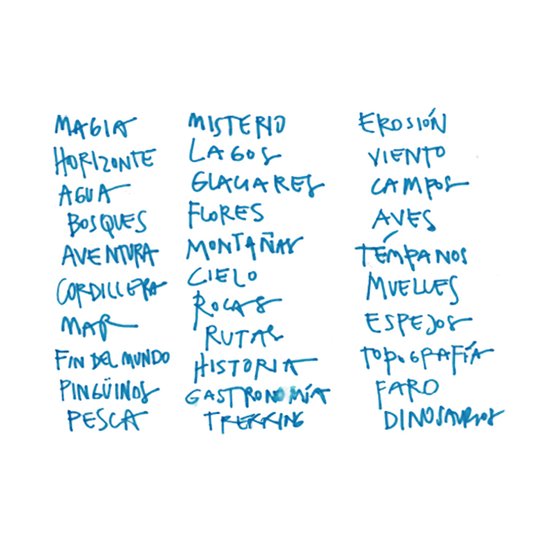 MAGIA
HORIZONTE
AGUA
BOSQUES
AVENTURA
CORDILLERA
MAR
FIN DEL MUNDO
PINGÜINOS
PESCA
MISTERIO
LAGOS
GLACIARES
FLORES
MONTAÑAS
CIELO
ROCAS
RUTAS
HISTORIA
GASTRONOMÍA
TREKKING
EROSIÓN
VIENTO
CAMPOS
AVES
TÉMPANOS
MUELLES
ESPEJOS
TOPOGRAFÍA
FARO
DINOSAURIOS